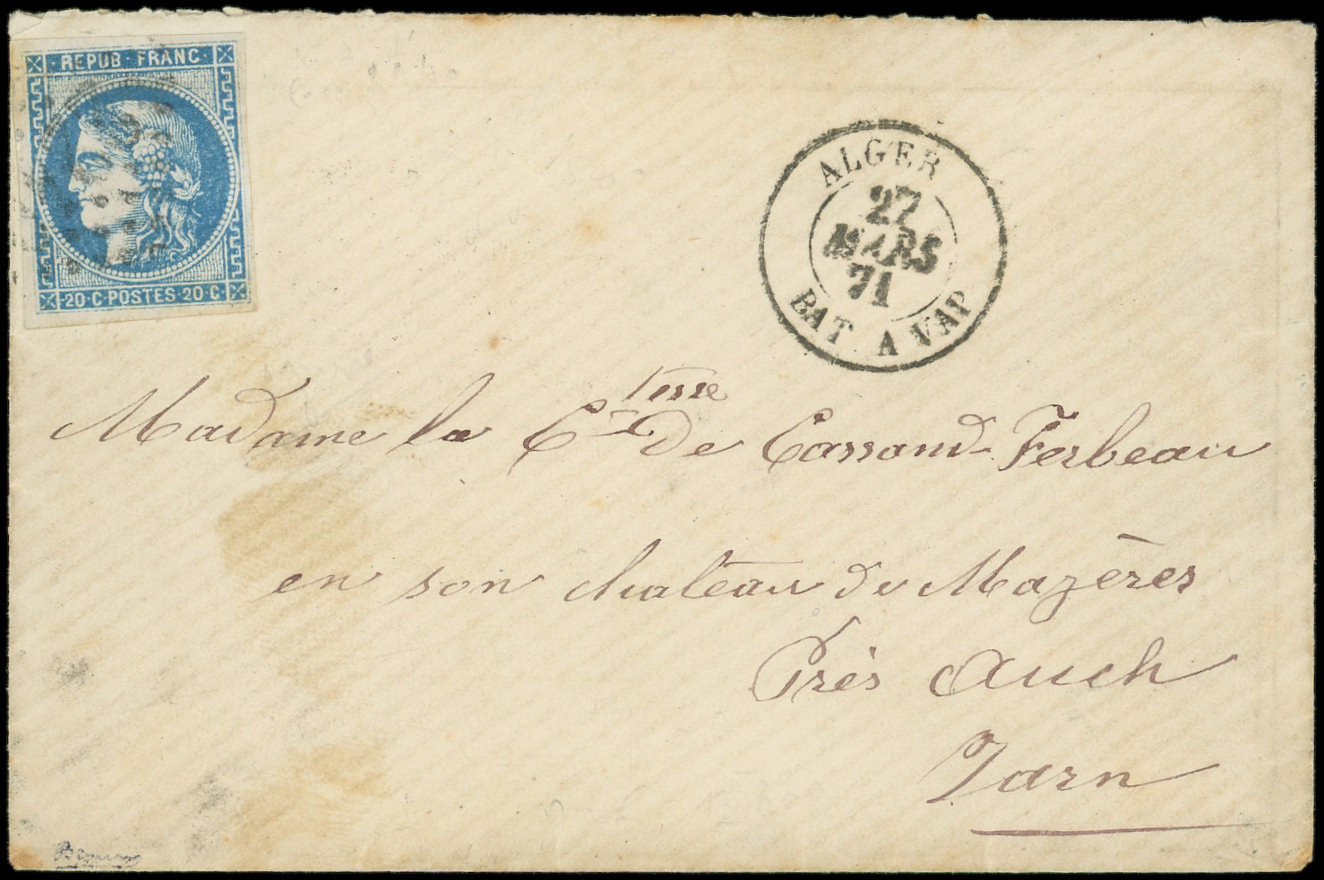 REPUB · FRANC ·
20 · C · POSTES · 20 · C ·
ALGER
27
MARS
71
BAT. A VAP
Madame la Ctesse de Cassand-Ferbeau
en son chateau de Mazères
Près Auch
Tarn